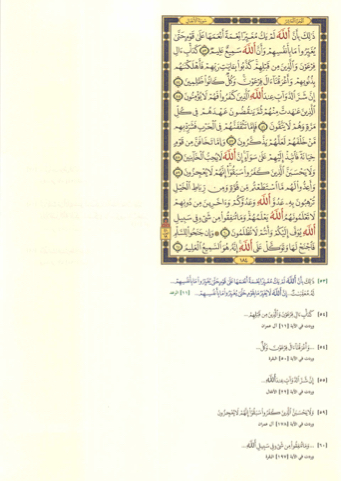 ذَٰلِكَ بِأَنَّ ٱللَّهَ لَمْ يَكُ مُغَيِّرًا نِّعْمَةً أَنْعَمَهَا عَلَىٰ قَوْمٍ حَتَّىٰ
يُغَيِّرُوا۟ مَا بِأَنفُسِهِمْ وَأَنَّ ٱللَّهَ سَمِيعٌ عَلِيمٌ ٥٣ كَدَأْبِ ءَالِ
فِرْعَوْنَ وَٱلَّذِينَ مِن قَبْلِهِمْ كَذَّبُوا۟ بِـَٔايَٰتِ رَبِّهِمْ فَأَهْلَكْنَٰهُم
بِذُنُوبِهِمْ وَأَغْرَقْنَآ ءَالَ فِرْعَوْنَ وَكُلٌّ كَانُوا۟ ظَٰلِمِينَ ٥٤
إِنَّ شَرَّ ٱلدَّوَآبِّ عِندَ ٱللَّهِ ٱلَّذِينَ كَفَرُوا۟ فَهُمْ لَا يُؤْمِنُونَ ٥٥
ٱلَّذِينَ عَٰهَدتَّ مِنْهُمْ ثُمَّ يَنقُضُونَ عَهْدَهُمْ فِى كُلِّ
مَرَّةٍ وَهُمْ لَا يَتَّقُونَ ٥٦ فَإِمَّا تَثْقَفَنَّهُمْ فِى ٱلْحَرْبِ فَشَرِّدْ بِهِم
مَّنْ خَلْفَهُمْ لَعَلَّهُمْ يَذَّكَّرُونَ ٥٧ وَإِمَّا تَخَافَنَّ مِن قَوْمٍ
خِيَانَةً فَٱنۢبِذْ إِلَيْهِمْ عَلَىٰ سَوَآءٍ إِنَّ ٱللَّهَ لَا يُحِبُّ ٱلْخَآئِنِينَ ٥٨
وَلَا يَحْسَبَنَّ ٱلَّذِينَ كَفَرُوا۟ سَبَقُوٓا۟ إِنَّهُمْ لَا يُعْجِزُونَ ٥٩
وَأَعِدُّوا۟ لَهُم مَّا ٱسْتَطَعْتُم مِّن قُوَّةٍ وَمِن رِّبَاطِ ٱلْخَيْلِ
تُرْهِبُونَ بِهِۦ عَدُوَّ ٱللَّهِ وَعَدُوَّكُمْ وَءَاخَرِينَ مِن دُونِهِمْ
لَا تَعْلَمُونَهُمُ ٱللَّهُ يَعْلَمُهُمْ وَمَا تُنفِقُوا۟ مِن شَىْءٍ فِى سَبِيلِ
ٱللَّهِ يُوَفَّ إِلَيْكُمْ وَأَنتُمْ لَا تُظْلَمُونَ ٦٠ وَإِن جَنَحُوا۟ لِلسَّلْمِ
فَٱجْنَحْ لَهَا وَتَوَكَّلْ عَلَى ٱللَّهِ إِنَّهُۥ هُوَ ٱلسَّمِيعُ ٱلْعَلِيمُ ٦١
١٨٤
[٥٣] ذَٰلِكَ بِأَنَّ ٱللَّهَ لَمْ يَكُ مُغَيِّرًا نِّعْمَةً أَنْعَمَهَا عَلَىٰ قَوْمٍ حَتَّىٰ يُغَيِّرُوا۟ مَا بِأَنفُسِهِمْ ...
لَهُ مُعَقِّبَٰتٌ ... إِنَّ ٱللَّهَ لَا يُغَيِّرُ مَا بِقَوْمٍ حَتَّىٰ يُغَيِّرُوا۟ مَا بِأَنفُسِهِمْ ... [١١] الرعد
[٥٤] كَدَأْبِ ءَالِ فِرْعَوْنَ وَٱلَّذِينَ مِن قَبْلِهِمْ ...
وردت في الآية [١١] آل عمران
[٥٤] ... وَأَغْرَقْنَآ ءَالَ فِرْعَوْنَ وَكُلٌّ ...
وردت في الآية [٥٠] البقرة
[٥٥] إِنَّ شَرَّ ٱلدَّوَآبِّ عِندَ ٱللَّهِ ...
وردت في الآية [٢٢] الأنفال
[٥٩] وَلَا يَحْسَبَنَّ ٱلَّذِينَ كَفَرُوا۟ سَبَقُوٓا۟ إِنَّهُمْ لَا يُعْجِزُونَ
وردت في الآية [١٧٨] آل عمران
[٦٠] ... وَمَا تُنفِقُوا۟ مِن شَىْءٍ فِى سَبِيلِ ٱللَّهِ ...
وردت في الآية [٢٧٢] البقرة